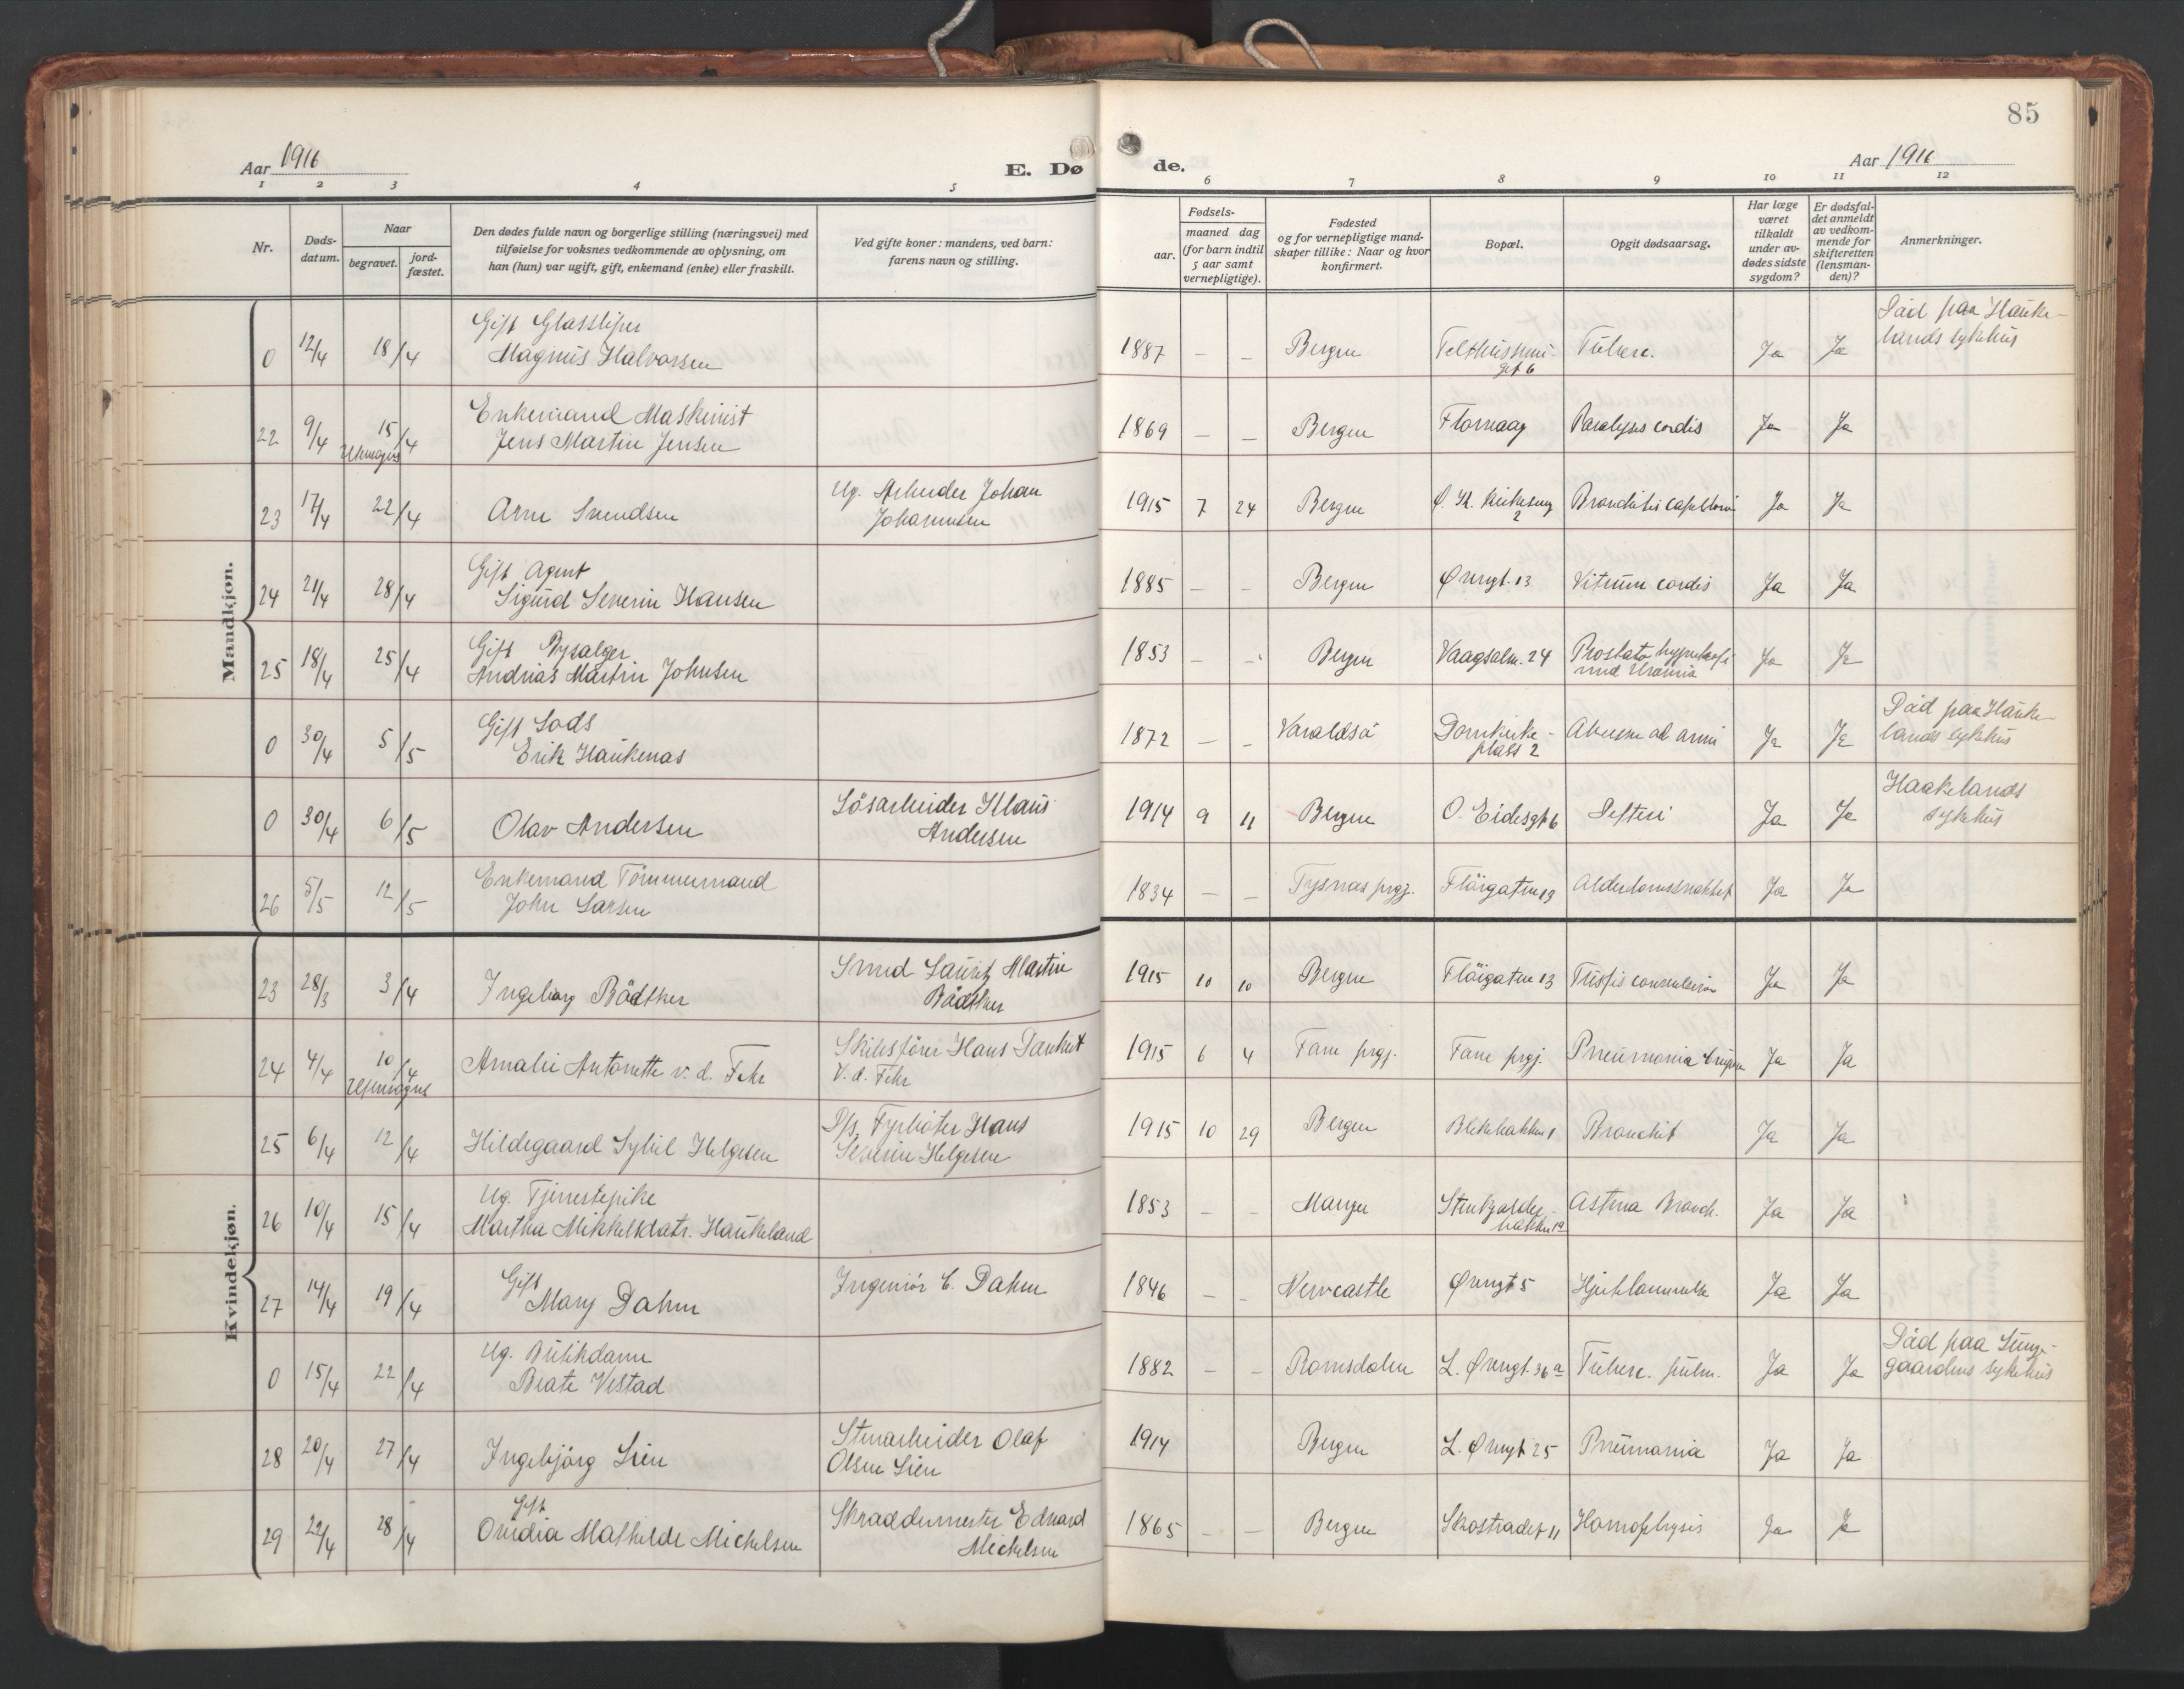 85
Aar 1916
E. Dø
de.
Aar 1916
1 2 3 4 5
6 7 8 9 10 11 12
Nr.
Døds-
datum.
Naar
begravet.
jord-
fæstet.
Den dødes fulde navn og borgerlige stilling (næringsvei) med
tilføielse for voksnes vedkommende av oplysning, om
han (hun) var ugift, gift, enkemand (enke) eller fraskilt.
Ved gifte koner: mandens, ved barn:
farens navn og stilling.
Fødsels-
aar.
maaned dag
(for barn indtil
5 aar samt
vernepligtige).
Fødested
og for vernepligtige mand-
skaper tillike: Naar og hvor
konfirmert.
Bopæl.
Opgit dødsaarsag.
Har læge
været
tilkaldt
under av-
dødes sidste
sygdom?
Er dødsfal-
det anmeldt
av vedkom-
mende for
skifteretten
(lensman-
den)?
Anmerkninger.
Mandkjøn.
0 12/4 18/4 Gift Glassliper
Magnus Halvorsen
1887 – – Bergen
6 Tuberc. Ja Ja
Död paa Hauke-
lands sykehus
22 9/4 15/4 Enkemand Maskinist
Jens Martin Jensen
1869 – – Bergen Florvaag Paralysis cordis Ja Ja
23 17/4 22/4 Arne Svendsen
Ug. Arbeider Johan
Johannesen
1915 7 24 Bergen
2 Bronchitis capillaris Ja Ja
24 21/4 28/4 Gift Agent
Sigurd Severin Hansen
1885 – – Bergen Øvregt. 13 Vitium cordis Ja Ja
25 18/4 25/4 Gift
Andreas Martin Johnsen
1853 – – Bergen Vaagsalm. 24 Prostata hypertrofi
med Uræmia Ja Ja
0 30/4 5/5 Gift Lods
Erik Haukenæs
1872 – – Varaldsö Domkirke-
plass 2 Ja Ja
Död paa Hauke-
lands sykehus
0 30/4 6/5 Olav Andersen
Lösarbeider Klaus
Andersen
1914 9 11 Bergen O. Eidesgt 6 Difteri Ja Ja
Haukelands
sykehus
26 5/5 12/5 Enkemand Tömmermand
John Larsen
1834 – – Tysnæs prgj. Flöigaten 13 Alderdomssvakhet Ja Ja
Kvindekjøn.
23 28/3 3/4 Ingeborg Bödtker
Smed Lauritz Martin
Bödtker
1915 10 10 Bergen Flöigaten 13 Tussis convulsiva Ja Ja
24 4/4 10/4 Amalie Antonette v. d. Fehr
Skibsförer Hans Tanket
v. d. Fehr
1915 6 4 Fane prgj. Fane prgj. Pneumonia Ja Ja
25 6/4 12/4 Hildegaard Sybil Helgesen
D/s. Fyrböter Hans
Severin Helgesen
1915 10 29 Bergen Blekebakken 1 Bronchit Ja Ja
26 10/4 15/4 Ug. Tjenestepike
Martha Mikkelsdatr. Haukeland
1853 – – Manger Stenkjælder-
bakken 19 Astma Bronch. Ja Ja
27 14/4 19/4 Gift
Mary Dahm
Ingeniör C. Dahm
1846 – – Newcastle Øvregt 5 Hjertelammelse Ja Ja
0 15/4 22/4 Ug. Butikdame
Beate Vestad
1882 – – Romsdalen L. Øvregt. 36a Tuberc. pulm. Ja Ja
Död paa Lunge-
gaardens sykehus
28 20/4 27/4 Ingebjörg Lien
Stenarbeider Olaf
Olsen Lien
1914 Bergen L. Øvregt 25 Pneumonia Ja Ja
29 22/4 28/4 Gift
Ovidia Mathilde Michelsen
Skræddermester Edvard
Michelsen
1865 – – Bergen Skostrædet 11 Hæmoptysis Ja Ja